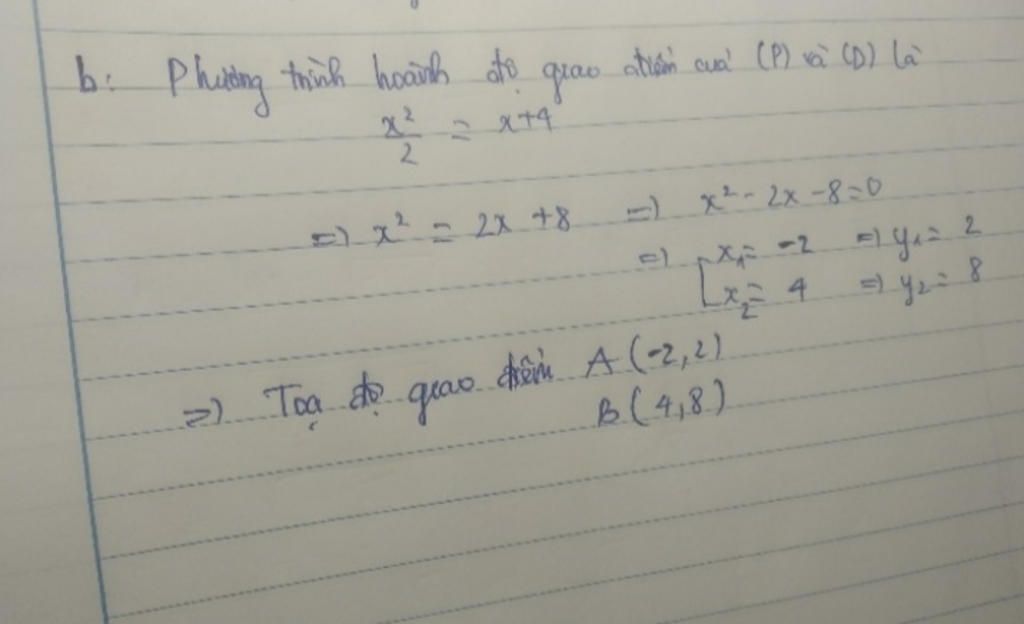 b: Phương trình hoành độ giao điểm của (P) và (D) là
x²/2 = x+4
=> x² = 2x +8 => x² - 2x - 8 = 0
=> [ x₁ = -2 => y₁ = 2
x₂ = 4 => y₂ = 8
=> Toạ độ giao điểm A (-2,2)
B (4,8)